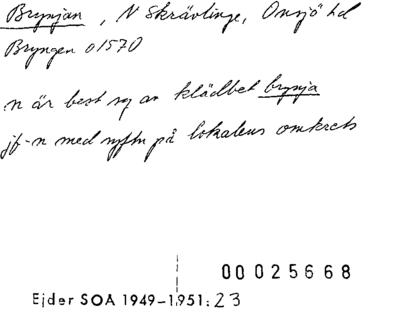 Brynjan, N Skrävlinge, Onsjö hd
Bryngen o 1570
n är best sg av klädbet brynja
jf-n med syftn på lokalens omkrets
00025668
Ejder SOA 1949-1951:23